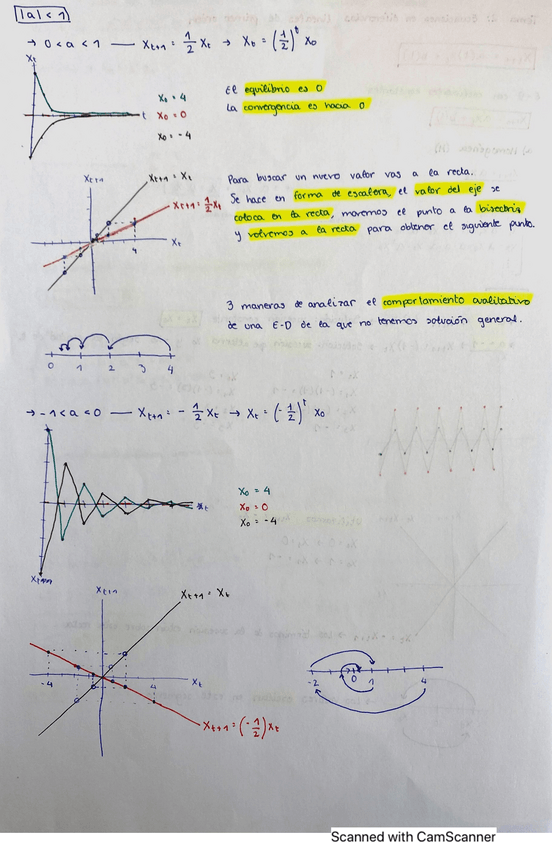 |a| < 1
→ 0 < a < 1 — X_{t+1} = 1/2 X_t → X_t = (1/2)^t X_0
X_t
X_0 = 4
X_0 = 0
X_0 = -4
t
El equilibrio es 0
La convergencia es hacia 0
X_{t+1}
X_{t+1} = X_t
X_{t+1} = 1/2 X_t
4
X_t
Para buscar un nuevo valor vas a la recta.
Se hace en forma de escalera, el valor del eje se
coloca en la recta, movemos el punto a la bisectriz
y volvemos a la recta para obtener el siguiente punto.
3 maneras de analizar el comportamiento cualitativo
de una E-D de la que no tenemos solución general.
0 1 2 3 4
→ -1 < a < 0 — X_{t+1} = - 1/2 X_t → X_t = (- 1/2)^t X_0
X_0 = 4
X_0 = 0
X_0 = -4
X_{t+1}
X_{t+1} = X_t
X_t
-4
4
X_{t+1} = (- 1/2) X_t
-2 0 1 4
Scanned with CamScanner